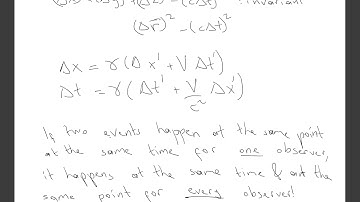 invariant
(Δr̄)² – (cΔt)²
Δx = γ(Δx' + VΔt')
Δt = γ(Δt' + V/c² Δx')
If two events happen at the same point
at the same time for one observer,
it happens at the same time & at the
same point for every observer!